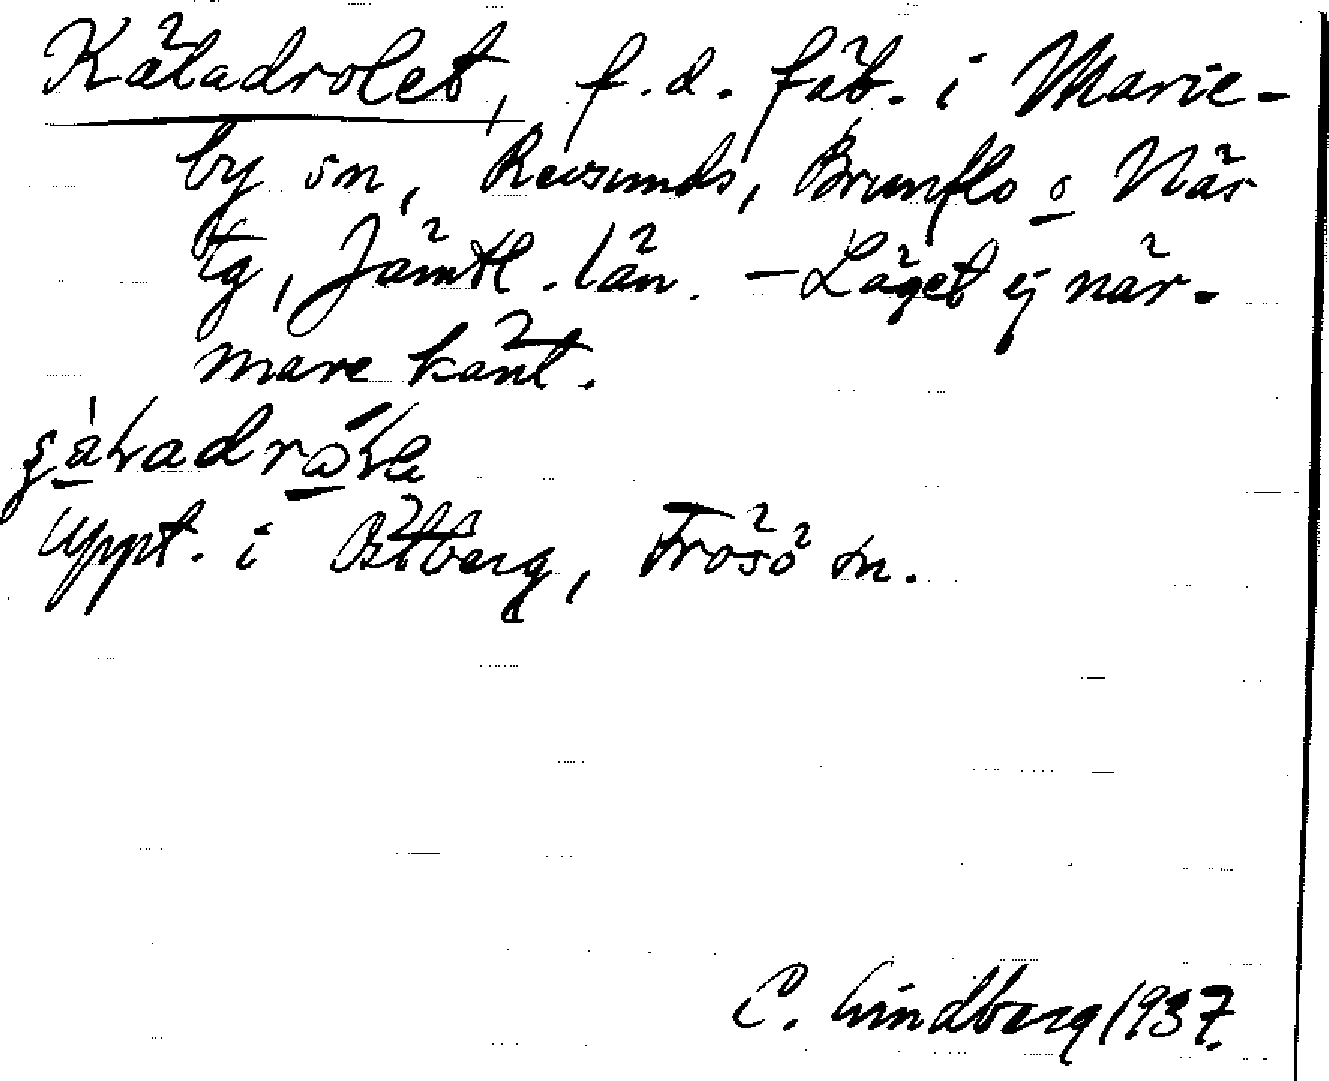 Käladrolet, f.d. fäb. i Marie-
by sn, Revsunds, Brunflo o När
tg, Jämtl. län. – Läget ej när-
mare känt.
uppt. i Östberg, Frösö sn.
C. Lindberg 1937.